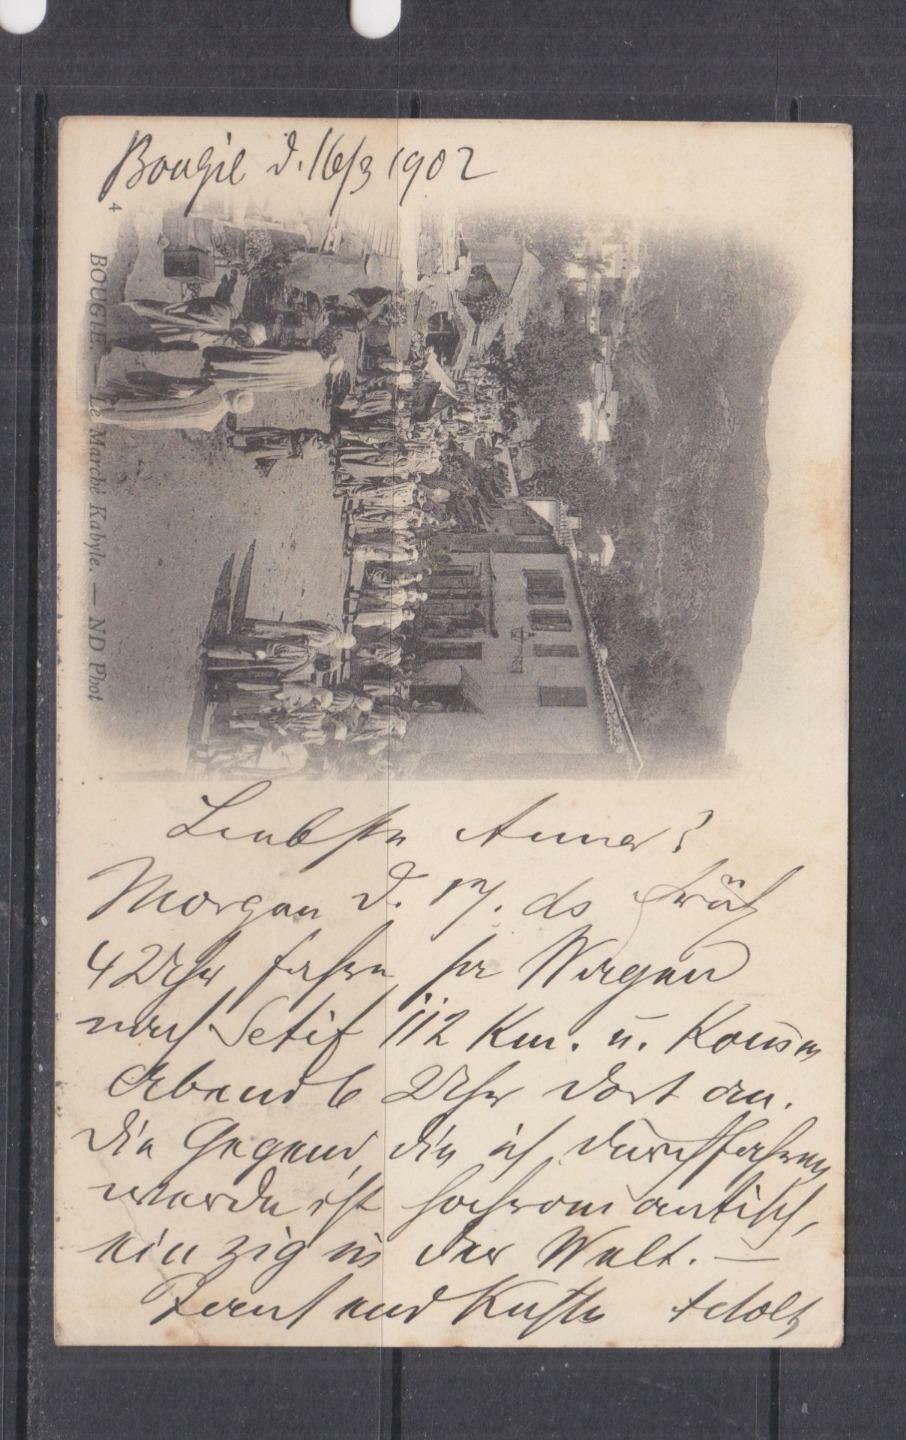 Bougie d. 16/3 1902
4 BOUGIE. — Le Marché Kabyle. — ND Phot
Liebste Anna!
Morgen d. 17. ds früh
4 Uhr fahre per Wagen
nach Setif 112 Km. u. komme
Abend 6 Uhr dort an.
Die Gegend, die ich durchfahren
werde ist hochromantisch,
einzig in der Welt. —
und Küsse Adolf